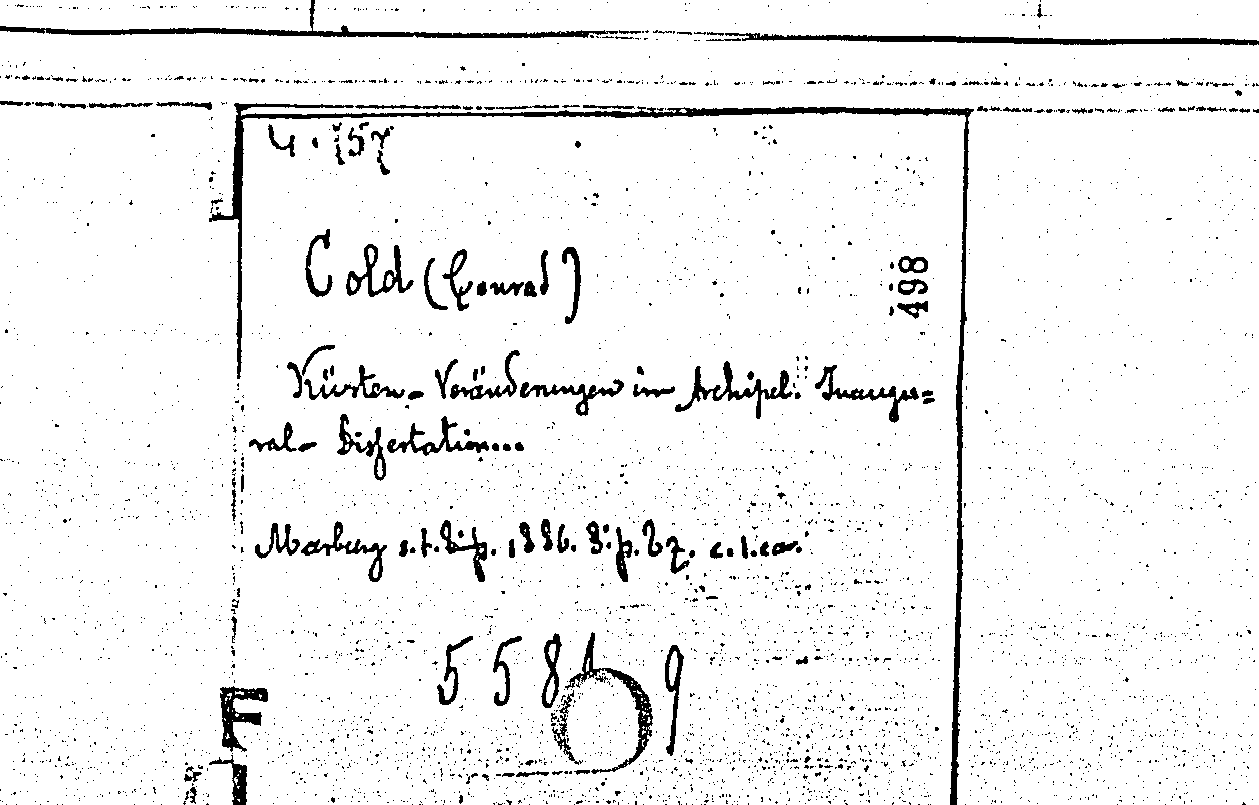 4.757
Cold (Conrad)
498
Küsten-Veränderungen im Archipel. Inaugu=
ral-Dissertation...
Marburg s.t. 1886. 8:
558 9
F